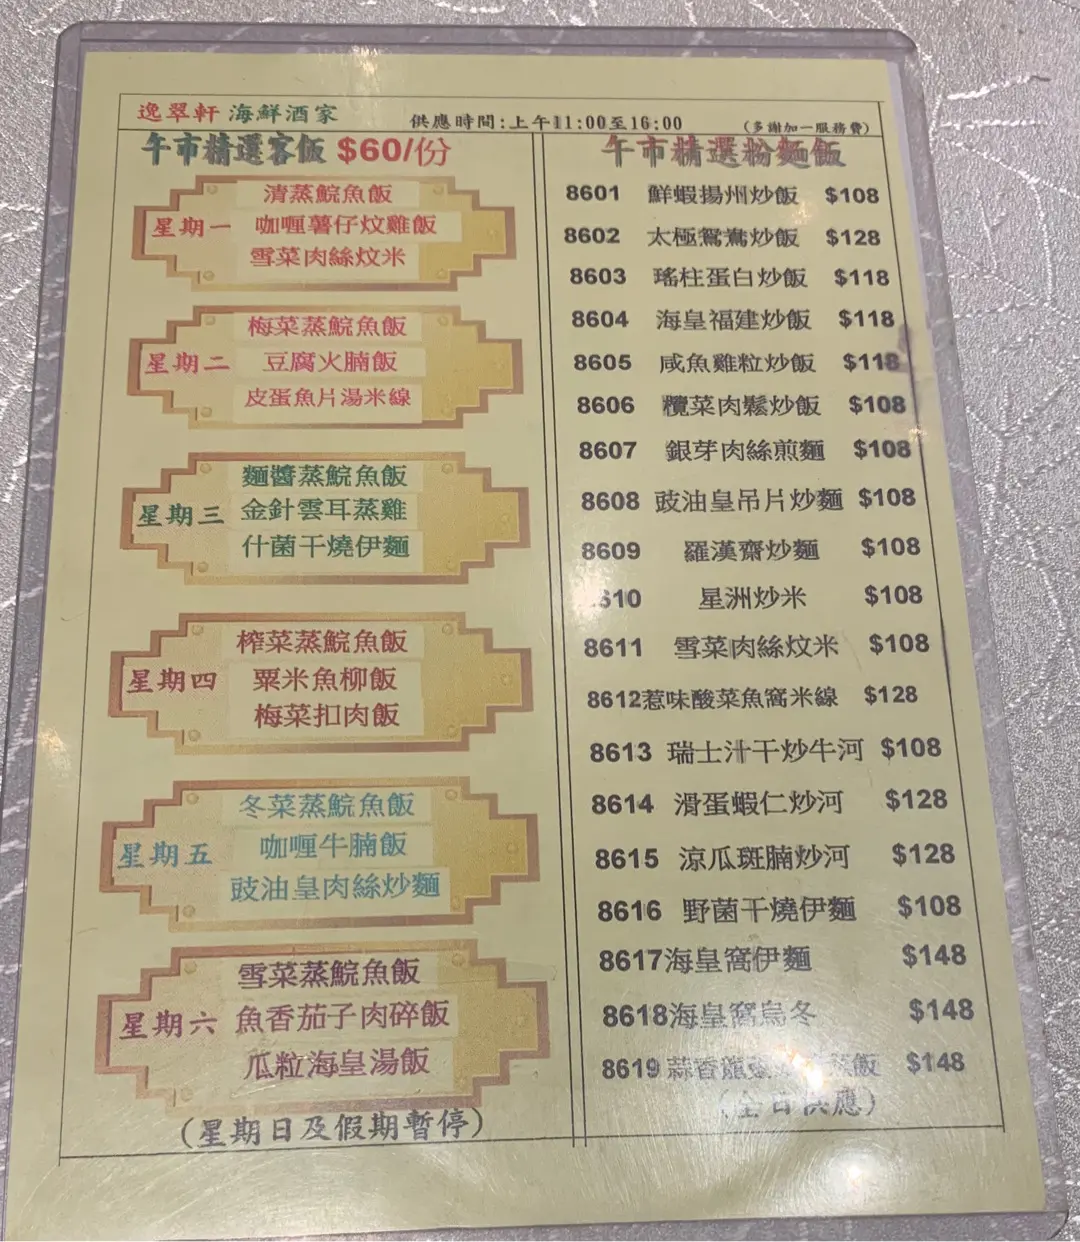 逸翠軒 海鮮酒家
供應時間:上午11:00至16:00
(多謝加一服務費)
午市精選客飯 $60/份
星期一
清蒸鯇魚飯
咖喱薯仔炆雞飯
雪菜肉絲炆米
星期二
梅菜蒸鯇魚飯
豆腐火腩飯
皮蛋魚片湯米線
星期三
麵醬蒸鯇魚飯
金針雲耳蒸雞
什菌干燒伊麵
星期四
榨菜蒸鯇魚飯
粟米魚柳飯
梅菜扣肉飯
星期五
冬菜蒸鯇魚飯
咖喱牛腩飯
豉油皇肉絲炒麵
星期六
雪菜蒸鯇魚飯
魚香茄子肉碎飯
瓜粒海皇湯飯
(星期日及假期暫停)
午市精選粉麵飯
8601 鮮蝦揚州炒飯 $108
8602 太極鴛鴦炒飯 $128
8603 瑤柱蛋白炒飯 $118
8604 海皇福建炒飯 $118
8605 咸魚雞粒炒飯 $118
8606 欖菜肉鬆炒飯 $108
8607 銀芽肉絲煎麵 $108
8608 豉油皇吊片炒麵 $108
8609 羅漢齋炒麵 $108
610 星洲炒米 $108
8611 雪菜肉絲炆米 $108
8612惹味酸菜魚窩米線 $128
8613 瑞士汁干炒牛河 $108
8614 滑蛋蝦仁炒河 $128
8615 涼瓜斑腩炒河 $128
8616 野菌干燒伊麵 $108
8617海皇窩伊麵 $148
8618海皇窩烏冬 $148
8619 蒜香龍 飯 $148
(全日供應)